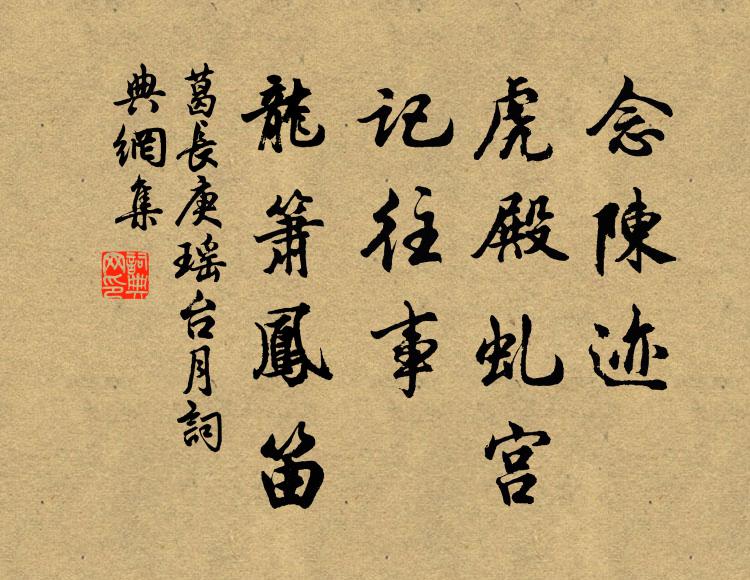 念陳迹
虎殿虬宫
記往事
龍簫鳳笛
葛長庚瑶台月詞
典網集
詞典網印